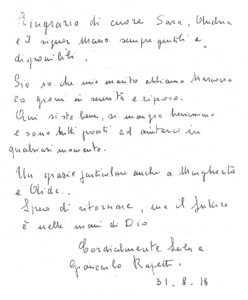 Ringrazio di cuore Sara, Andrea
e il signor Mario sempre gentili e
disponibili.
Sia io che mio marito abbiamo trascorso
20 giorni in serenità e riposo.
Qui si sta bene, si mangia benissimo
e sono tutti pronti ad aiutarci in
qualsiasi momento.
Un grazie particolare anche a Margherita
e Elide.
Spero di ritornare, ma il futuro
è nelle mani di Dio
Cordialmente
Giancarlo
31.8.18